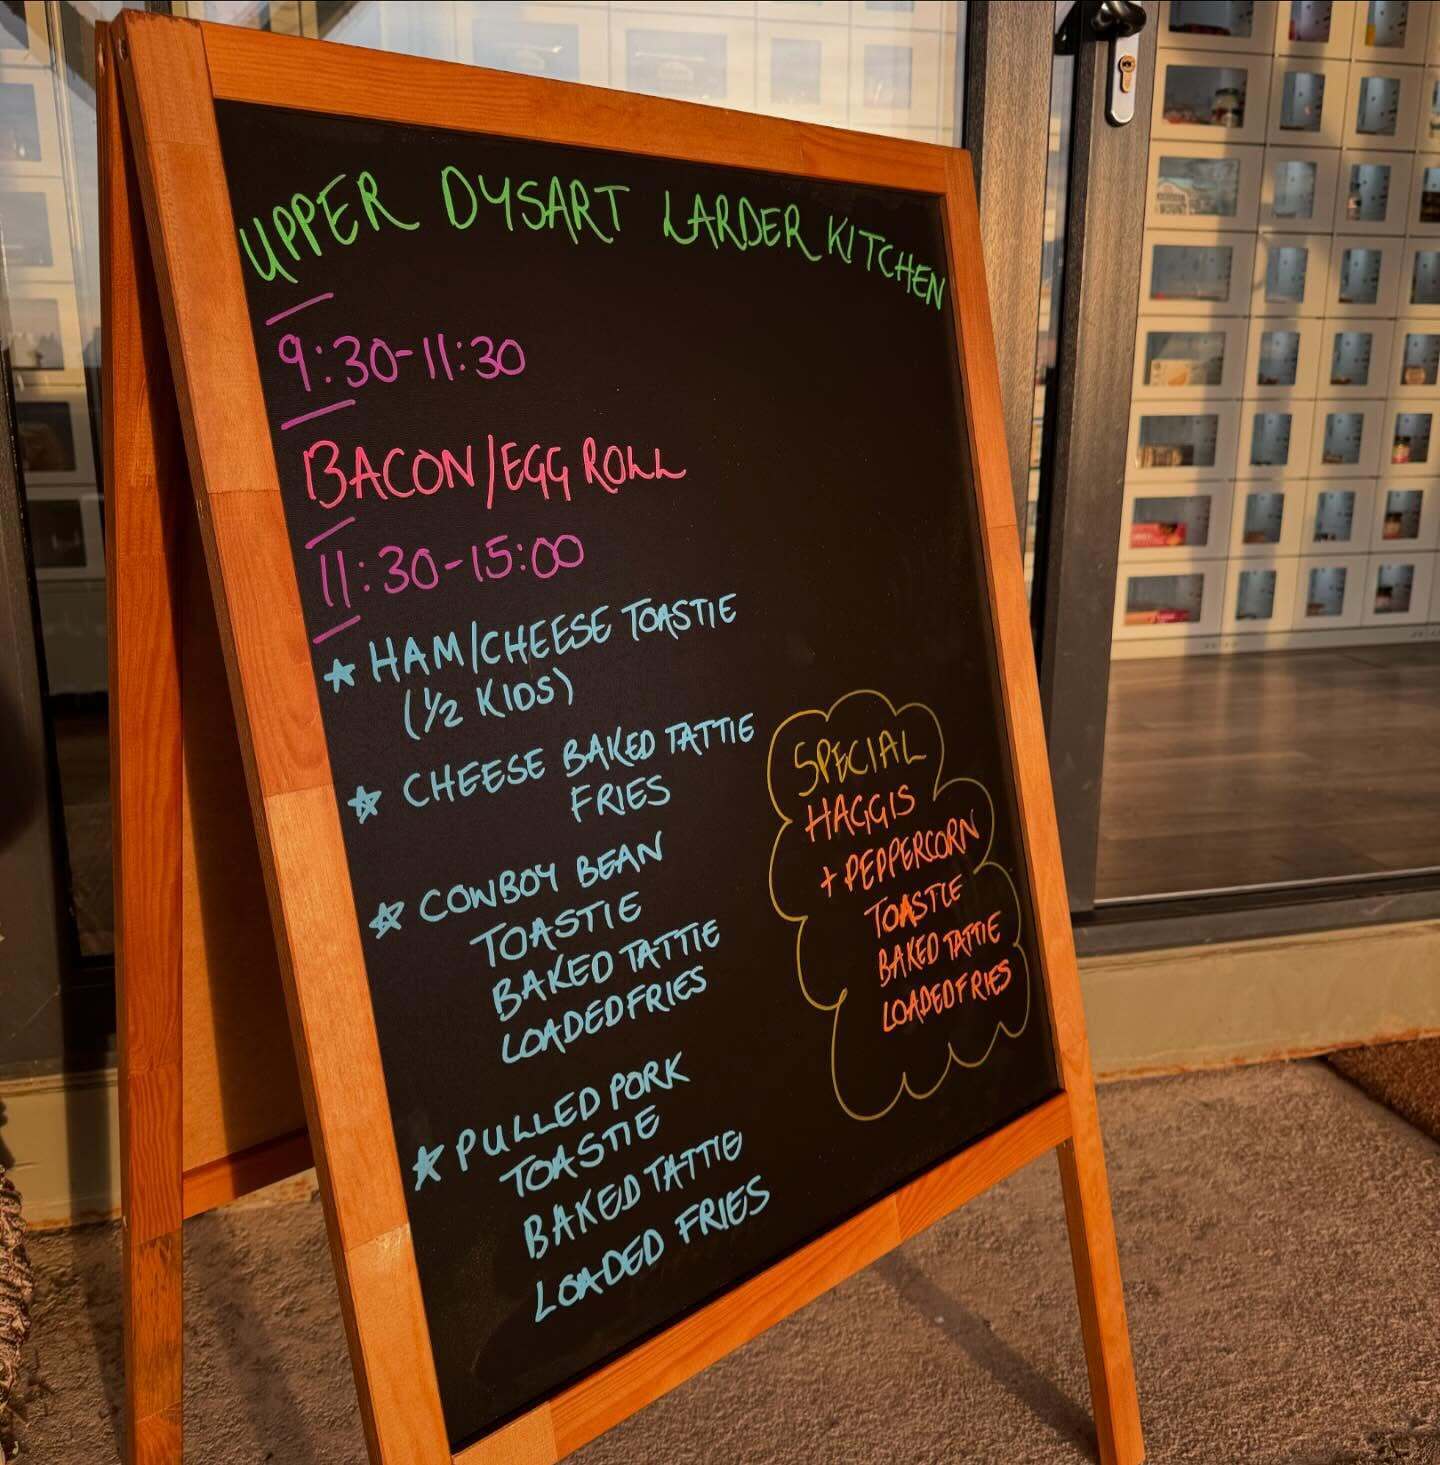 UPPER DYSART LARDER KITCHEN
9:30-11:30
BACON/EGG ROLL
11:30-15:00
★ HAM/CHEESE TOASTIE
(1/2 KIDS)
★ CHEESE BAKED TATTIE
FRIES
★ COWBOY BEAN
TOASTIE
BAKED TATTIE
LOADED FRIES
★ PULLED PORK
TOASTIE
BAKED TATTIE
LOADED FRIES
SPECIAL
HAGGIS
+ PEPPERCORN
TOASTIE
BAKED TATTIE
LOADED FRIES